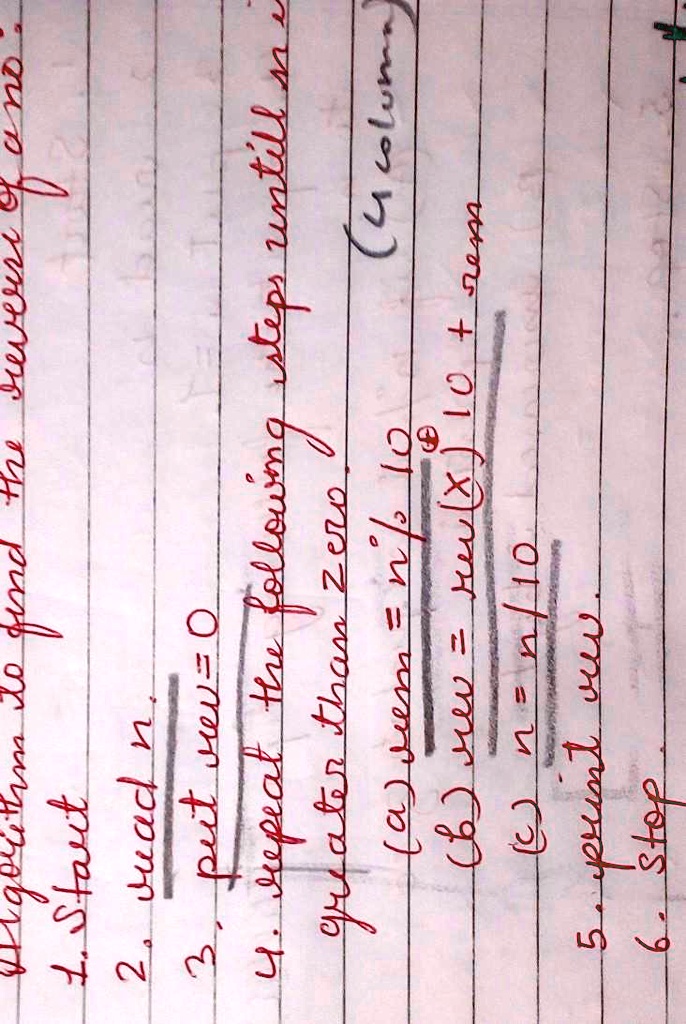 Algorithm to find the reverse of a no:
1. Start
2. read n.
3. put rev=0
4. repeat the following steps untill n i
greater than zero.
(4 column)
(a) rem = n % 10
(b) rev = rev (x) 10 + rem
(c) n = n/10
5. print rev.
6. Stop.